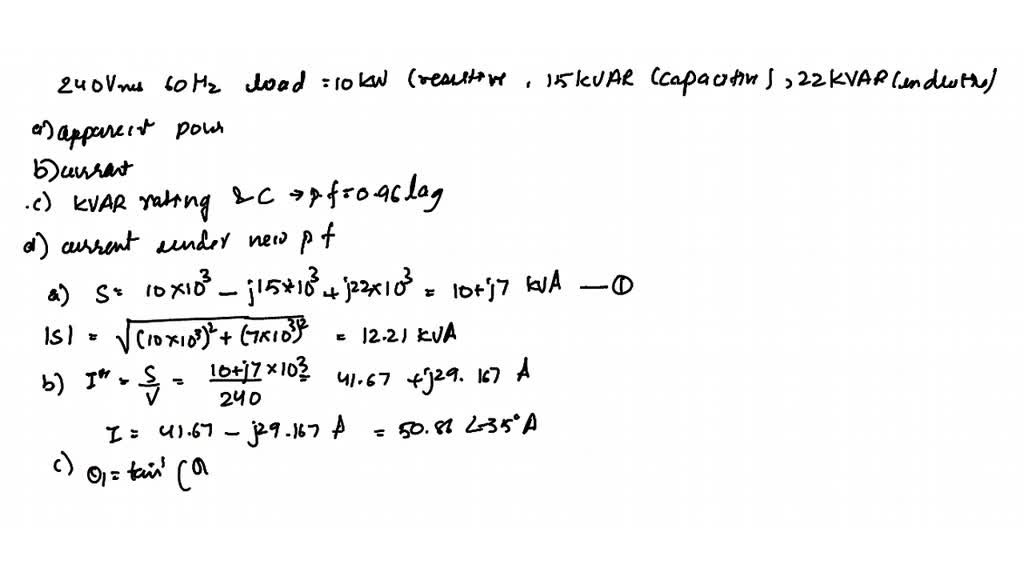 240Vrms 60Hz load = 10kW (resistive, 15kVAR (capacitive), 22KVAR (inductive)
a) apparent power
b) current
c) KVAR rating & C → pf = 0.96 lag
d) current under new pf
a) S = 10×10³ - j15×10³ + j22×10³ = 10+j7 kVA — ①
|S| = √((10×10³)² + (7×10³)²) = 12.21 kVA
b) I* = S/V = 10+j7×10³/240 = 41.67 + j29.167 A
I = 41.67 - j29.167 A = 50.86 ∠-35° A
c) θ₁ = tan⁻¹ (Q